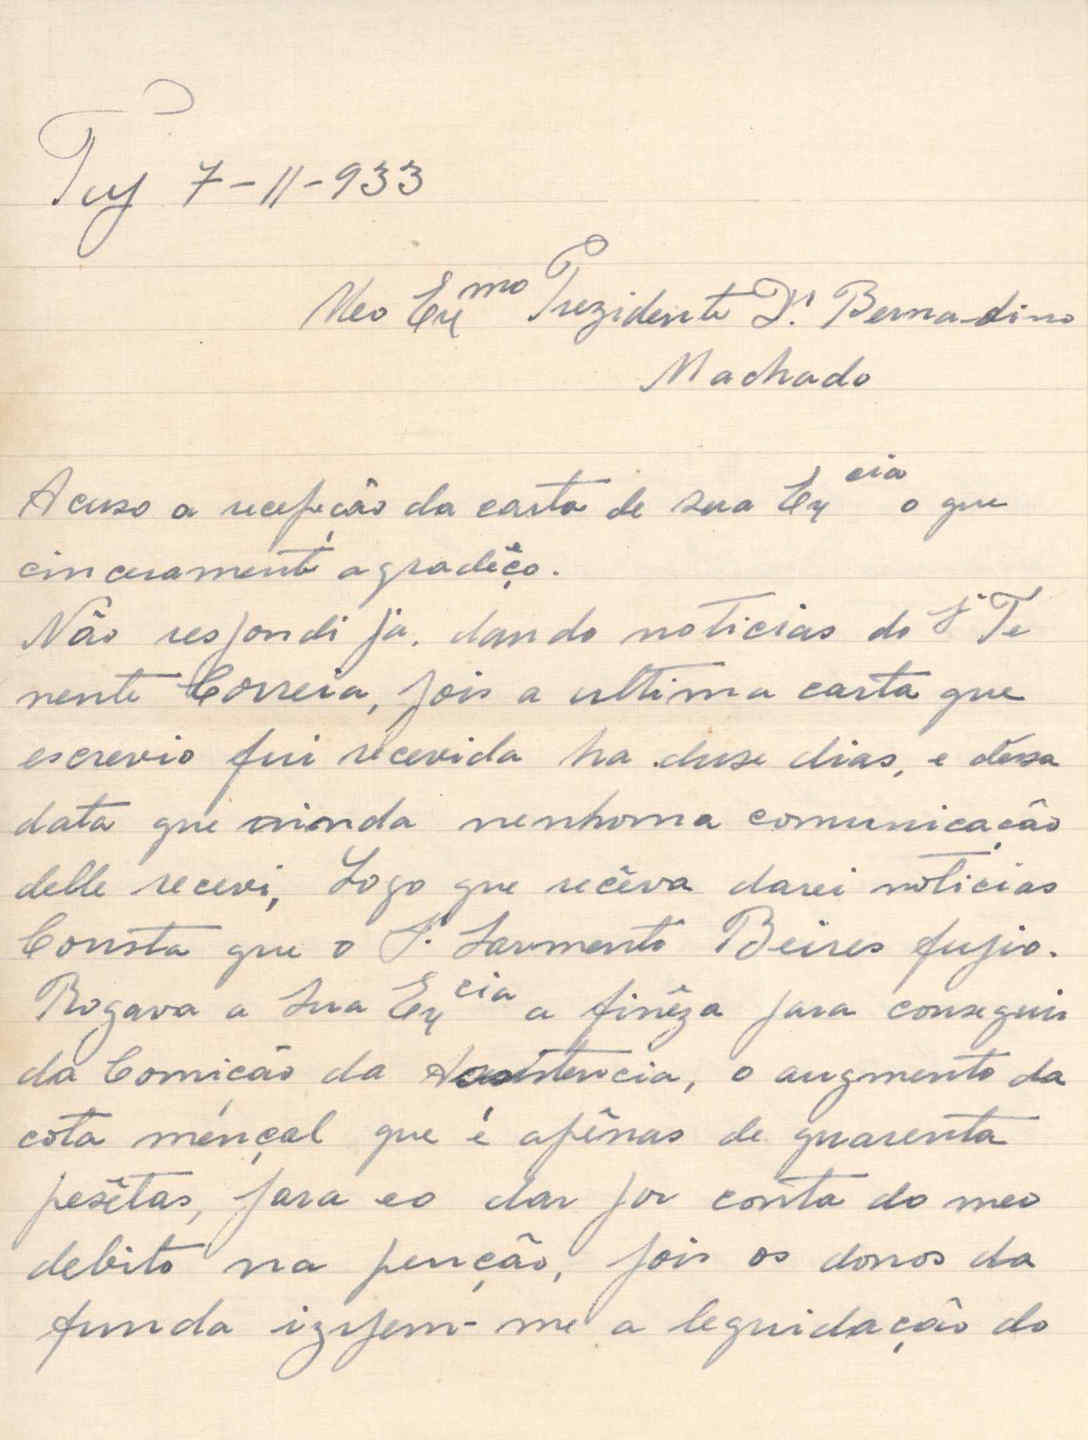 Tuy 7-11-933
Meo Exmo Prezidente Dr. Berna-dino
Machado
Acuso a recepção da carta de sua Excia o que
cinceramente agradêço.
Não respondi já, dando noticias do Sr Te
nente Correia, pois a ultima carta que
escrevio fui recevida ha duse dias, e dessa
data que ainda nenhoma comunicação
delle recevi, Logo que recêva darei noticias
Consta que o Sr. Sarmento Beires fujio.
Rogava a Sua Excia a finêza para conseguir
da Comição da Assistencia, o augmento da
cota mençal que é apênas de quarenta
pesêtas, para eo dar por conta do meo
debito na penção, pois os donos da
funda izijem-me a leguidação do